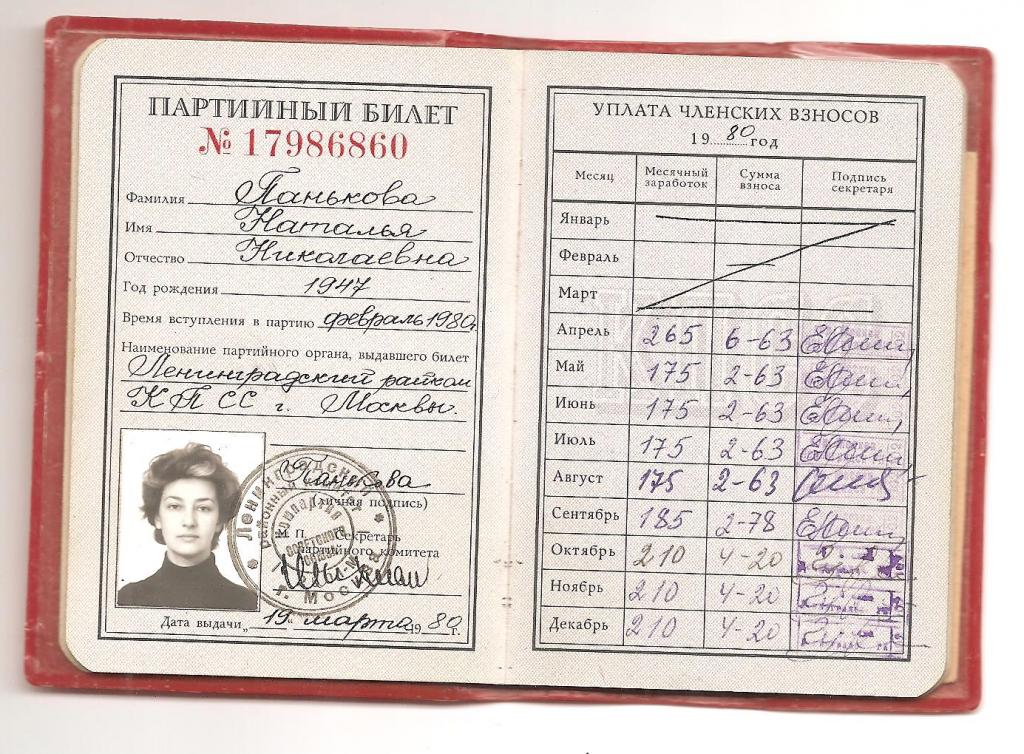 ПАРТИЙНЫЙ БИЛЕТ
№ 17986860
Фамилия Панькова
Имя Наталья
Отчество Николаевна
Год рождения 1947
Время вступления в партию февраль 1980г.
Наименование партийного органа, выдавшего билет
Ленинградский райком
КПСС г. Москвы.
Панькова
(личная подпись)
М. П. Секретарь
партийного комитета
Ленинградский
районный комитет
Компартия
Советского
Союза
г. Москва
Дата выдачи „19" марта 1980 г.
УПЛАТА ЧЛЕНСКИХ ВЗНОСОВ
1980 год
Месяц Месячный заработок Сумма взноса Подпись секретаря
Январь
Февраль
Март
Апрель 265 6-63
Май 175 2-63
Июнь 175 2-63
Июль 175 2-63
Август 175 2-63
Сентябрь 185 2-78
Октябрь 210 4-20
Ноябрь 210 4-20
Декабрь 210 4-20